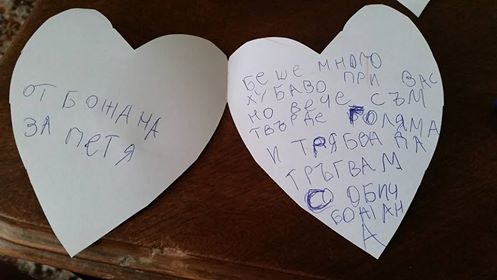 ОТ БОЖАНА
ЗА ПЕТЯ
БЕШЕ МНОГО
ХУБАВО ПРИ ВАС
НО ВЕЧЕ СЪМ
ТВЪРДЕ ГОЛЯМА
И ТРЯБВА ДА
ТРЪГВАМ
С ОБИЧ
БОЖАН
А